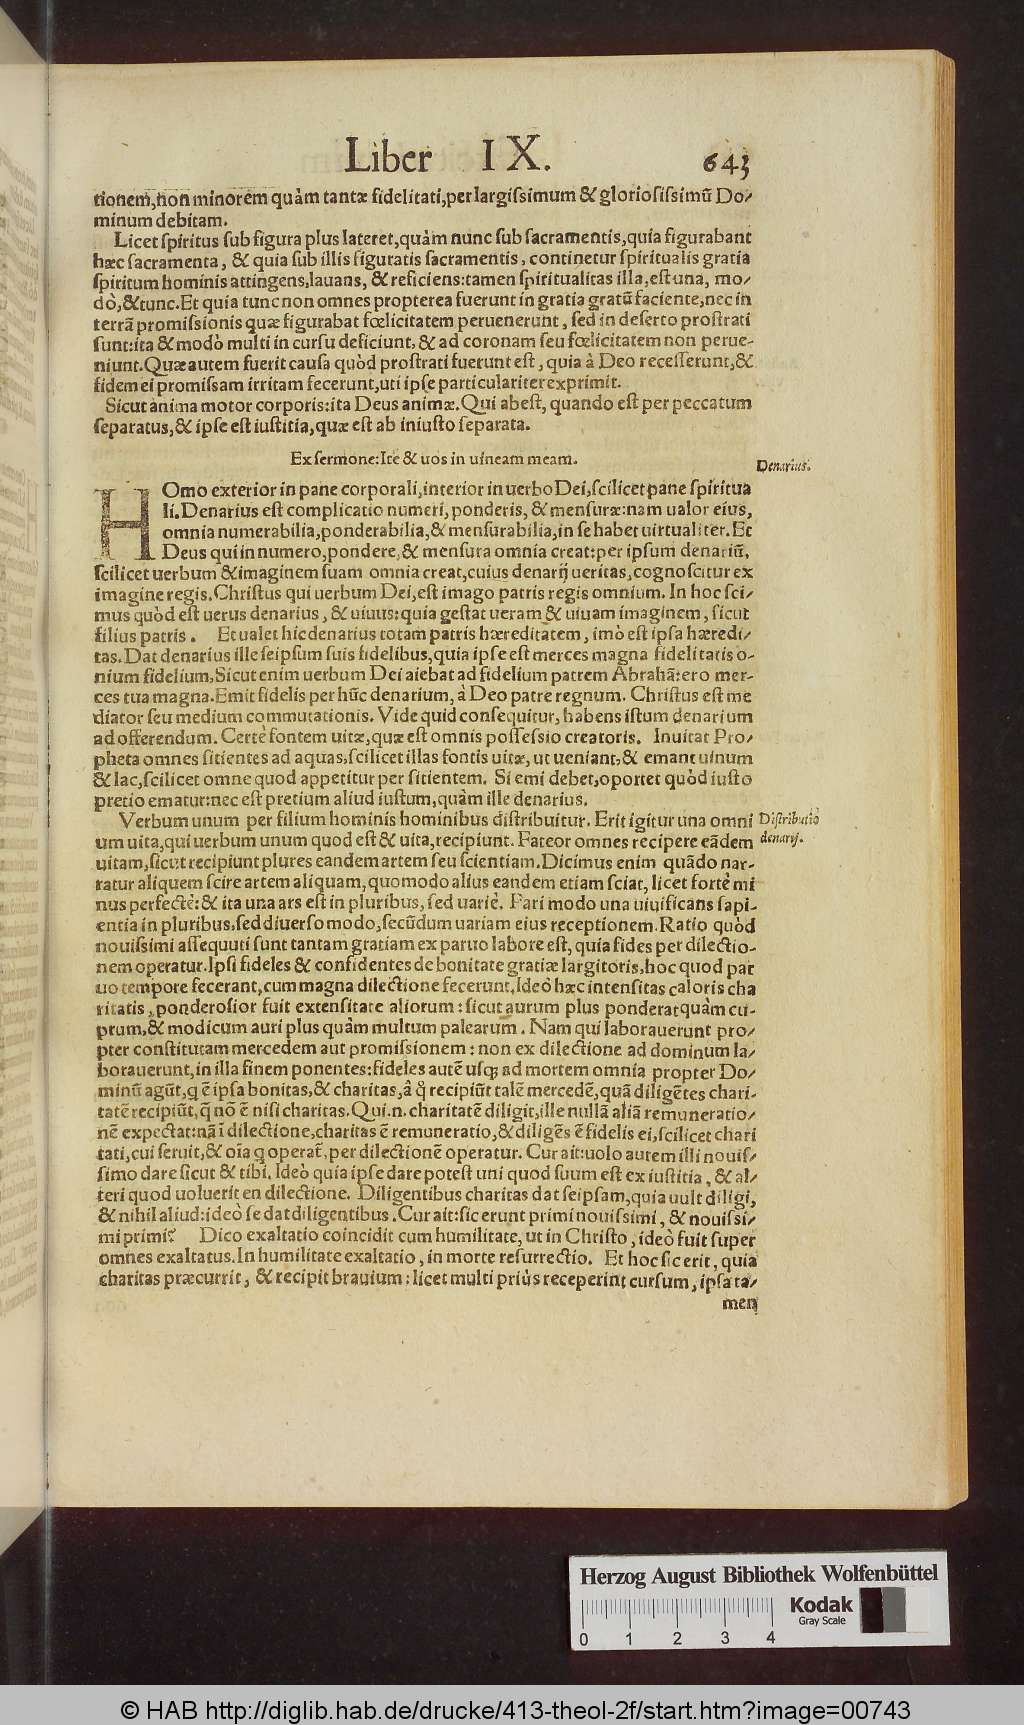 Liber IX. 643
tionem, non minorem quàm tantæ fidelitati, per largissimum & gloriosissimū Do⸗
minum debitam.
Licet spiritus sub figura plus lateret, quàm nunc sub sacramentis, quia figurabant
hæc sacramenta, & quia sub illis figuratis sacramentis, continetur spiritualis gratia
spiritum hominis attingens, lauans, & reficiens: tamen spiritualitas illa, est una, mo⸗
dò, & tunc. Et quia tunc non omnes propterea fuerunt in gratia gratū faciente, nec in
terrā promissionis quæ figurabat fœlicitatem peruenerunt, sed in deserto prostrati
sunt: ita & modò multi in cursu deficiunt, & ad coronam seu fœlicitatem non perue-
niunt. Quæ autem fuerit causa quòd prostrati fuerunt est, quia à Deo recesserunt, &
fidem ei promissam irritam fecerunt, uti ipse particulariter exprimit.
Sicut anima motor corporis: ita Deus animæ. Qui abest, quando est per peccatum
separatus, & ipse est iustitia, quæ est ab iniusto separata.
Ex sermone: Ite & uos in uineam meam.
Denarius.
HOmo exterior in pane corporali, interior in uerbo Dei, scilicet pane spiritua
li. Denarius est complicatio numeri, ponderis, & mensuræ: nam ualor eius,
omnia numerabilia, ponderabilia, & mensurabilia, in se habet uirtualiter. Et
Deus qui in numero, pondere, & mensura omnia creat: per ipsum denariū,
scilicet uerbum & imaginem suam omnia creat, cuius denarij ueritas, cognoscitur ex
imagine regis. Christus qui uerbum Dei, est imago patris regis omnium. In hoc sci⸗
mus quòd est uerus denarius, & uiuus: quia gestat ueram & uiuam imaginem, sicut
filius patris. Et ualet hic denarius totam patris hæreditatem, imò est ipsa hæredi⸗
tas. Dat denarius ille seipsum suis fidelibus, quia ipse est merces magna fidelitatis o-
nium fidelium, Sicut enim uerbum Dei aiebat ad fidelium patrem Abrahā: ero mer-
ces tua magna. Emit fidelis per hūc denarium, à Deo patre regnum. Christus est me
diator seu medium commutationis. Vide quid consequitur, habens istum denarium
ad offerendum. Certè fontem uitæ, quæ est omnis possessio creatoris. Inuitat Pro⸗
pheta omnes sitientes ad aquas, scilicet illas fontis uitæ, ut ueniant, & emant uinum
& lac, scilicet omne quod appetitur per sitientem. Si emi debet, oportet quòd iusto
pretio ematur: nec est pretium aliud iustum, quàm ille denarius.
Verbum unum per filium hominis hominibus distribuitur. Erit igitur una omni
Distributio
denarij.
um uita, qui uerbum unum quod est & uita, recipiunt. Fateor omnes recipere eādem
uitam, sicut recipiunt plures eandem artem seu scientiam. Dicimus enim quādo nar-
ratur aliquem scire artem aliquam, quomodo alius eandem etiam sciat, licet fortè mi
nus perfectè: & ita una ars est in pluribus, sed uariè. Pari modo una uiuificans sapi-
entia in pluribus, sed diuerso modo, secūdum uariam eius receptionem. Ratio quòd
nouissimi assequuti sunt tantam gratiam ex paruo labore est, quia fides per dilectio-
nem operatur. Ipsi fideles & confidentes de bonitate gratiæ largitoris, hoc quod par
uo tempore fecerant, cum magna dilectione fecerunt. Ideò hæc intensitas caloris cha
ritatis, ponderosior fuit extensitate aliorum: sicut aurum plus ponderat quàm cu-
prum, & modicum auri plus quàm multum palearum. Nam qui laborauerunt pro⸗
pter constitutam mercedem aut promissionem: non ex dilectione ad dominum la⸗
borauerunt, in illa finem ponentes: fideles autē usq; ad mortem omnia propter Do⸗
minū agūt, q ē ipsa bonitas, & charitas, à q̃ recipiūt talē mercedē, quā diligētes chari-
tatē recipiūt, q̃ nō ē nisi charitas. Qui.n. charitatē diligit, ille nullā aliā remuneratio⸗
nē expectat: nā ī dilectione, charitas ē remuneratio, & diligēs ē fidelis ei, scilicet chari
tati, cui seruit, & oīa q operat̃, per dilectionē operatur. Cur ait: uolo autem illi nouis⸗
simo dare sicut & tibi. Ideò quia ipse dare potest uni quod suum est ex iustitia, & al⸗
teri quod uoluerit en dilectione. Diligentibus charitas dat seipsam, quia uult diligi,
& nihil aliud: ideò se dat diligentibus. Cur ait: sic erunt primi nouissimi, & nouissi⸗
mi primi? Dico exaltatio coincidit cum humilitate, ut in Christo, ideò fuit super
omnes exaltatus. In humilitate exaltatio, in morte resurrectio. Et hoc sic erit, quia
charitas præcurrit, & recipit brauium: licet multi priùs receperint cursum, ipsa ta⸗
men
Herzog August Bibliothek Wolfenbüttel
Kodak
Gray Scale
0 1 2 3 4
© HAB http://diglib.hab.de/drucke/413-theol-2f/start.htm?image=00743